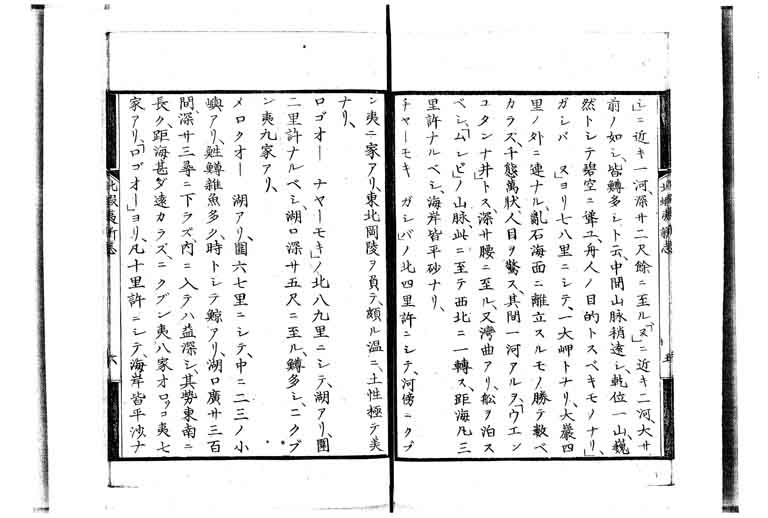 シ」ニ近キ一河、深サ二尺餘ニ至ル、「ヌ」ニ近キ二河、大サ
前ノ如シ、皆鱒多シト云、中間山脉稍遠シ、乾位一山、巍
然トシテ碧空ニ聳エ、舟人ノ目的トスベキモノナリ、
ガシバ 「ヌ」ヨリ七八里ニシテ、一大岬トナリ、大巖四
里ノ外ニ連ナル、亂石海面ニ離立スルモノ勝テ數ベ
カラズ、千態萬狀人目ヲ驚ス、其間一河アル、「ウエン
コタンナ井」トス、深サ腰ニ至ル、又灣曲アリ、船ヲ泊ス
ベシ、「ムシビ」ノ山脉此ニ至テ西北ニ一轉ス、距海凡三
里許ナルベシ、海岸皆平砂ナリ、
チヤーモキ 「ガシバ」ノ北四里許ニシテ、河傍ニクブ
ン夷ニ家アリ、東北岡陵ヲ負テ、頗ル温ニ、土性極テ美
ナリ、
ロゴオー 「ナヤーモキ」ノ北八九里ニシテ、湖アリ、圍
二里許ナルベシ、湖口深サ五尺ニ至ル、鱒多シ、ニクブ
ン夷九家アリ、
メロクオー 湖アリ、圍六七里ニシテ、中ニ二三ノ小
嶼アリ、鮏鱒雜魚多ク、時トシテ鯨アリ、湖口廣サ三百
間、深サ三尋ニ下ラズ、内ニ入テハ益深シ、其勢東南ニ
長ク、距海甚ダ遠カラズ、ニクブン夷八家オロッコ夷七
家アリ、「ロゴオー」ヨリ、凡十里許ニシテ、海岸皆平沙ナ
北蝦夷新志
六
五